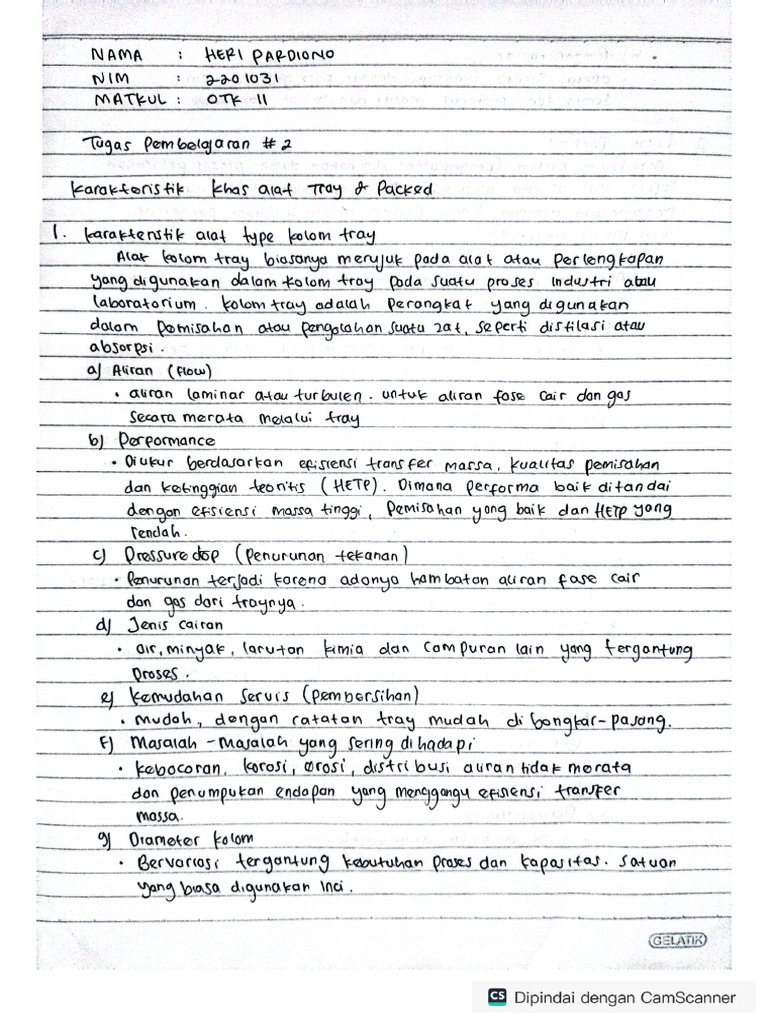 NAMA : HERI PARDIONO
NIM : 2201031
MATKUL : OTK II
Tugas Pembelajaran # 2
Karakteristik khas alat Tray & Packed
1. Karakteristik alat type kolom tray
Alat kolom tray biasanya merujuk pada alat atau Perlengkapan
yang digunakan dalam kolom tray pada suatu proses industri atau
laboratorium. kolom tray adalah perangkat yang digunakan
dalam Pemisahan atau pengolahan suatu zat, seperti distilasi atau
absorpsi.
a) Aliran (Flow)
• aliran laminar atau turbulen. untuk aliran fase cair dan gas
secara merata melalui tray
b) Performance
• Diukur berdasarkan efisiensi transfer massa, kualitas pemisahan
dan ketinggian teoritis (HETP). Dimana performa baik ditandai
dengan efisiensi massa tinggi, Pemisahan yang baik dan HETP yang
rendah.
c) Pressure dop (Penurunan tekanan)
• Penurunan terjadi karena adanya hambatan aliran fase cair
dan gas dari traynya.
d) Jenis cairan
• air, minyak, larutan kimia dan campuran lain yang tergantung
Proses.
e) Kemudahan Servis (Pembersihan)
• Mudah, dengan catatan tray mudah di bongkar-pasang.
f) Masalah-Masalah yang sering dihadapi
• kebocoran, korosi, erosi, distribusi aliran tidak merata
dan penumpukan endapan yang menggangu efisiensi transfer
massa.
g) Diameter kolom
• Bervariasi tergantung kebutuhan proses dan kapasitas. satuan
yang biasa digunakan Inci.
GELATIK
CS Dipindai dengan CamScanner